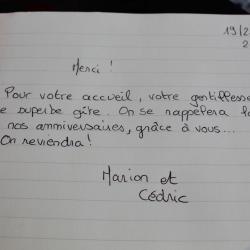 19/2
2
Merci !
Pour votre accueil, votre gentillesse
e superbe gîte. On se rappelera
nos anniversaires, grâce à vous....
On reviendra !
Marion et
Cédric